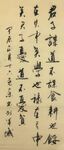 君子謀道不謀食耕也餒
在其中矣學也祿在其中
矣君子憂道不憂貧